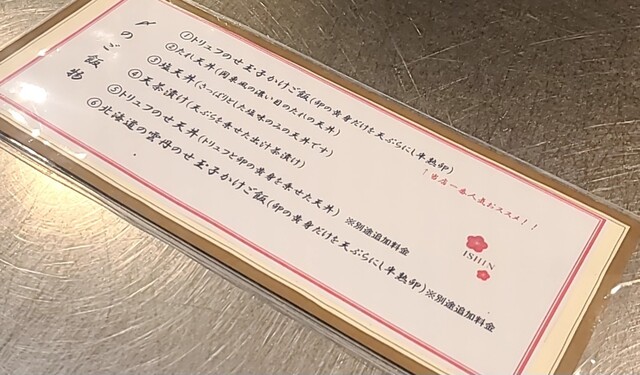 〆のご飯物
①トリュフのせ玉子かけご飯(卵の黄身だけを天ぷらにし半熟卵)
↑当店一番人気おススメ!!
②たれ天丼(関東風の濃い目のたれの天丼)
③塩天丼(さっぱりとした塩味のみの天丼です)
④天茶漬け(天ぷらを乗せた出汁茶漬け)
⑤トリュフのせ天丼(トリュフと卵の黄身を乗せた天丼) ※別途追加料金
⑥北海道の雲丹のせ玉子かけご飯(卵の黄身だけを天ぷらにし半熟卵)※別途追加料金
ISHIN